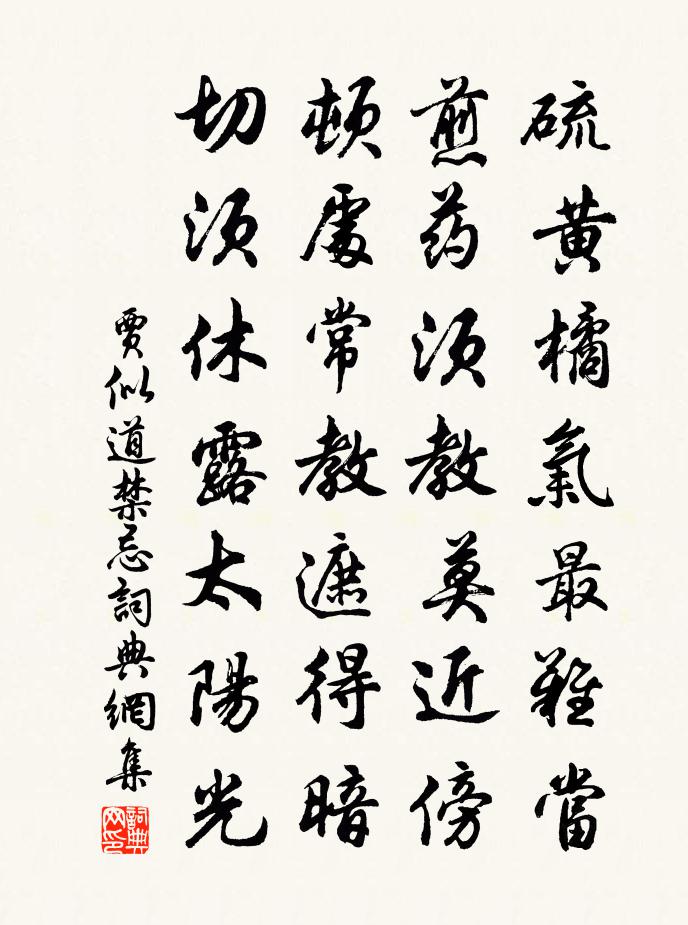 硫黄橘氣最難當
煎药須教莫近傍
頓處常教遮得暗
切須休露太陽光
賈似道禁忌詞典網集
詞典网印